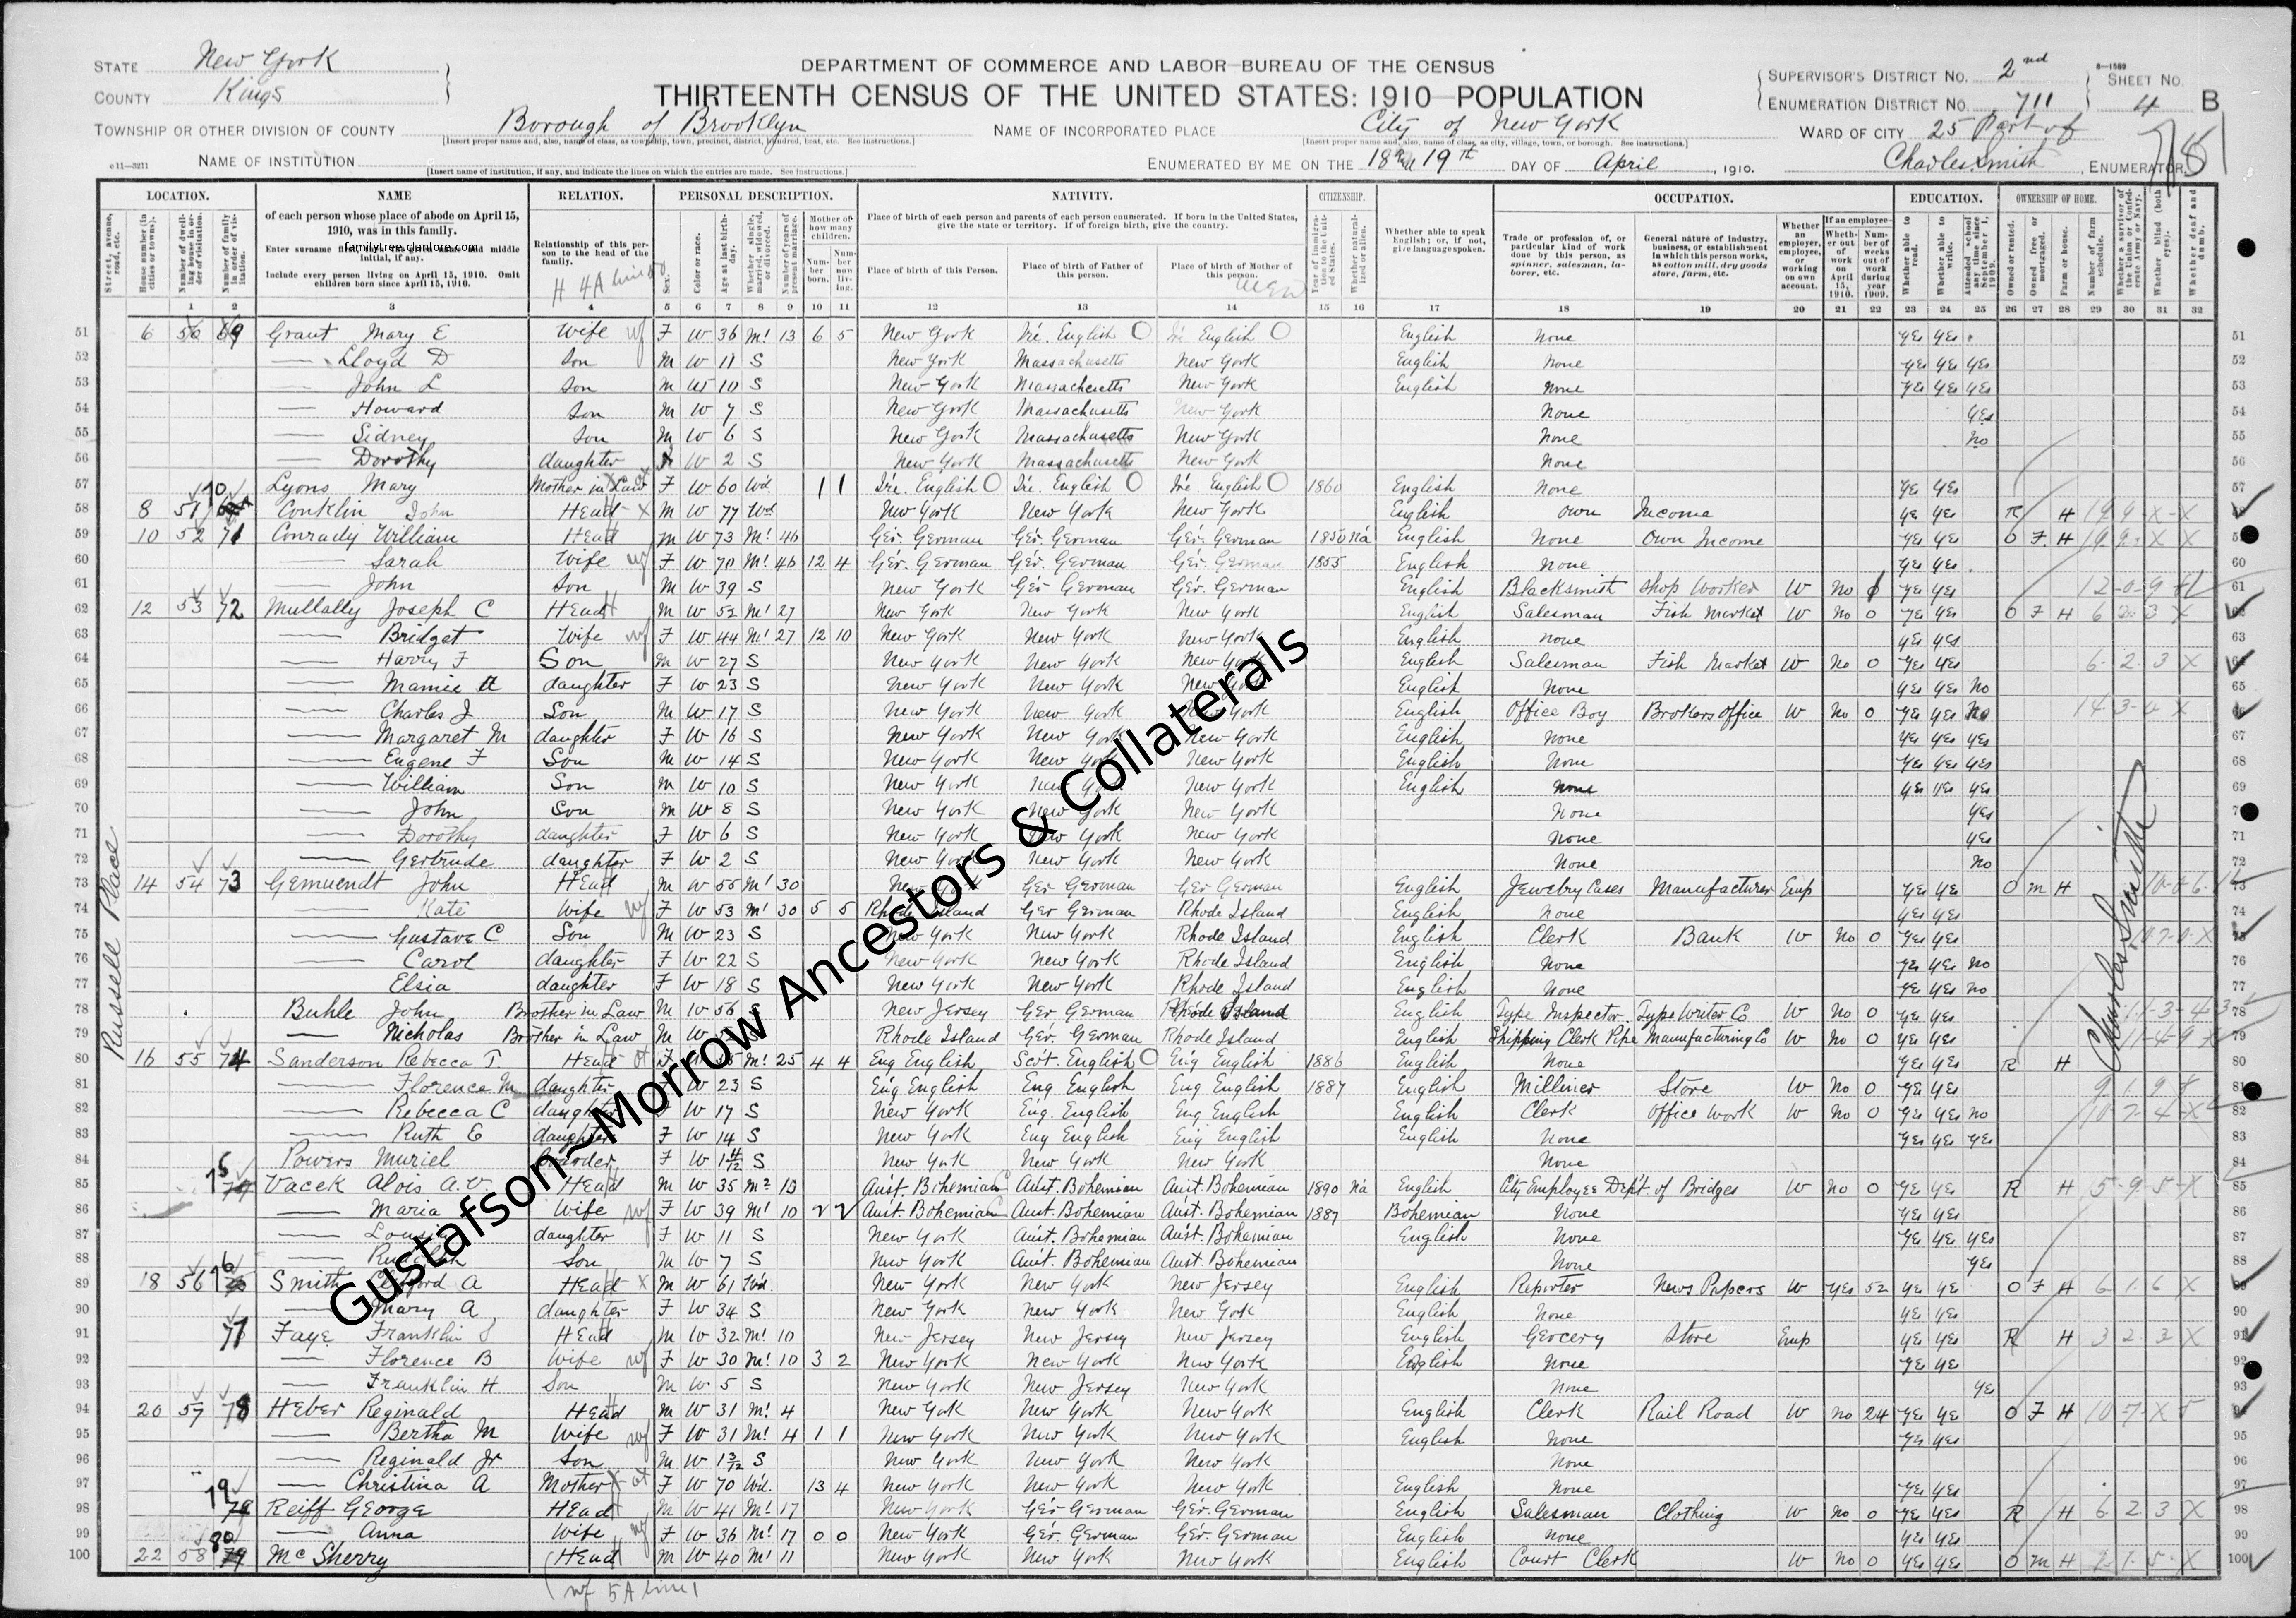 STATE New York
COUNTY Kings
TOWNSHIP OR OTHER DIVISION OF COUNTY Borough of Brooklyn
[Insert proper name and, also, name of class, as township, town, precinct, district, hundred, beat, etc. See instructions.]
NAME OF INSTITUTION
[Insert name of institution, if any, and indicate the lines on which the entries are made. See instructions.]
c11—3211
DEPARTMENT OF COMMERCE AND LABOR—BUREAU OF THE CENSUS
THIRTEENTH CENSUS OF THE UNITED STATES: 1910—POPULATION
NAME OF INCORPORATED PLACE City of New York
[Insert proper name and, also, name of class, as city, village, town, or borough. See instructions.]
ENUMERATED BY ME ON THE 18 19th DAY OF April, 1910.
SUPERVISOR'S DISTRICT No. 2nd
ENUMERATION DISTRICT No. 711
8—1589
SHEET No. 4 B
WARD OF CITY 25 Part of
Charles Smith, ENUMERATOR
LOCATION. NAME RELATION. PERSONAL DESCRIPTION. NATIVITY. CITIZENSHIP. OCCUPATION. EDUCATION. OWNERSHIP OF HOME.
of each person whose place of abode on April 15, 1910, was in this family.
familytree.clanlore.com
Include every person living on April 15, 1910. Omit children born since April 15, 1910.
Relationship of this person to the head of the family.
H 4A line
Place of birth of each person and parents of each person enumerated. If born in the United States, give the state or territory. If of foreign birth, give the country.
Place of birth of this Person. Place of birth of Father of this person. Place of birth of Mother of this person.
Whether able to speak English; or, if not, give language spoken.
Trade or profession of, or particular kind of work done by this person, as spinner, salesman, laborer, etc.
General nature of industry, business, or establishment in which this person works, as cotton mill, dry goods store, farm, etc.
Whether an employer, employee, or working on own account.
1 2 3 4 5 6 7 8 9 10 11 12 13 14 15 16 17 18 19 20 21 22 23 24 25 26 27 28 29 30 31 32
Russell Place
51 6 50 69 Grant Mary E Wife F W 36 M1 13 6 5 New York Ire. English Ire English English None yes yes
52 Lloyd D Son M W 11 S New York Massachusetts New York English None yes yes yes
53 John L Son M W 10 S New York Massachusetts New York English None yes yes yes
54 Howard Son M W 7 S New York Massachusetts New York None yes
55 Sidney Son M W 6 S New York Massachusetts New York None no
56 Dorothy daughter W 2 S New York Massachusetts New York None
57 Lyons Mary Mother in Law F W 60 Wd 1 1 Ire. English Ire. English Ire English 1860 English None yes yes
58 8 51 70 Conklin John Head M W 77 Wd New York New York New York English own Income yes yes R H
59 10 52 71 Conrady William Head M W 73 M1 46 Ger. German Ger German Ger. German 1850 Na English None Own Income yes yes O F H
60 Sarah Wife F W 70 M1 46 12 4 Ger. German Ger. German Ger. German 1855 English None yes yes
61 John Son M W 39 S New York Ger German Ger. German English Blacksmith Shop Worker W No yes yes
62 12 53 72 Mullally Joseph C Head M W 52 M1 27 New York New York New York English Salesman Fish Market W No 0 yes yes O F H
63 Bridget Wife F W 44 M1 27 12 10 New York New York New York English None yes yes
64 Harry F Son M W 27 S New York New York New York English Salesman Fish Market W No 0 yes yes
65 Mamie daughter F W 23 S New York New York New York English None yes yes No
66 Charles J Son M W 17 S New York New York New York English Office Boy Brokers office W No 0 yes yes No
67 Margaret M daughter F W 16 S New York New York New York English None yes yes yes
68 Eugene F Son M W 14 S New York New York New York English None yes yes yes
69 William Son M W 10 S New York New York New York English None yes yes yes
70 John Son M W 8 S New York New York New York None yes
71 Dorothy daughter F W 6 S New York New York New York None yes
72 Gertrude daughter F W 2 S New York New York New York None no
73 14 54 73 Gemuendt John Head M W 55 M1 30 New York Ger German Ger German English Jewelry Cases Manufacturer Emp yes yes O M H
74 Kate Wife F W 53 M1 30 5 5 Rhode Island Ger German Rhode Island English None yes yes
75 Gustave C Son M W 23 S New York New York Rhode Island English Clerk Bank W No 0 yes yes
76 Carol daughter F W 22 S New York New York Rhode Island English None yes yes no
77 Elsia daughter F W 18 S New York New York Rhode Island English None yes yes no
78 Buhle John Brother in Law M W 56 S New Jersey Ger German Rhode Island English Type Inspector Type Writer Co W No 0 yes yes
79 Nicholas Brother in Law M W Rhode Island Ger. German Rhode Island English Shipping Clerk Pipe Manufacturing Co W No 0 yes yes
80 16 55 74 Sanderson Rebecca T. Head F M1 25 4 4 Eng English Scot. English Eng English 1886 English None yes yes R H
81 Florence M daughter W 23 S Eng English Eng English Eng English 1887 English Milliner Store W No 0 yes yes
82 Rebecca C daughter W 17 S New York Eng. English Eng English English Clerk office Work W No 0 yes yes no
83 Ruth E daughter F W 14 S New York Eng English Eng English English None yes yes yes
84 Powers Muriel Boarder F W 1 4/12 S New York New York New York None
85 75 Vacek Alois A.V. Head M W 35 M2 10 Aust. Bohemian Aust. Bohemian Aust Bohemian 1890 Na English City Employee Dept. of Bridges W No 0 yes yes R H
86 Maria Wife F W 39 M1 10 2 2 Aust. Bohemian Aust. Bohemian Aust. Bohemian 1887 Bohemian None yes yes
87 daughter F W 11 S New York Aust. Bohemian Aust. Bohemian English None yes yes yes
88 Son M W 7 S New York Aust. Bohemian Aust Bohemian None yes
89 18 56 76 Smith A Head M W 61 Wd. New York New York New Jersey English Reporter News Papers W yes 52 yes yes O F H
90 Mary A daughter F W 34 S New York New York New York English None yes yes
91 77 Faye Franklin Head M W 32 M1 10 New Jersey New Jersey New Jersey English Grocery Store Emp yes yes R H
92 Florence B Wife F W 30 M1 10 3 2 New York New York New York English None yes yes
93 Franklin H Son M W 5 S New York New Jersey New York None yes
94 20 57 78 Heber Reginald Head M W 31 M1 4 New York New York New York English Clerk Rail Road W no 24 yes yes O F H
95 Bertha M Wife F W 31 M1 4 1 1 New York New York New York English None yes yes
96 Reginald Jr Son M W 1 3/12 S New York New York New York None
97 Christina A Mother F W 70 Wd. 13 4 New York New York New York English None yes yes
98 79 Reiff George Head M W 41 M1 17 New York Ger German Ger. German English Salesman Clothing W No 0 yes yes R H
99 Anna Wife F W 36 M1 17 0 0 New York Ger. German Ger. German English None yes yes
100 22 58 80 McSherry Head M W 40 M1 11 New York New York New York English Court Clerk W No 0 yes yes O M H
wf 5A line 1
Charles Smith
Gustafson~Morrow Ancestors & Collaterals